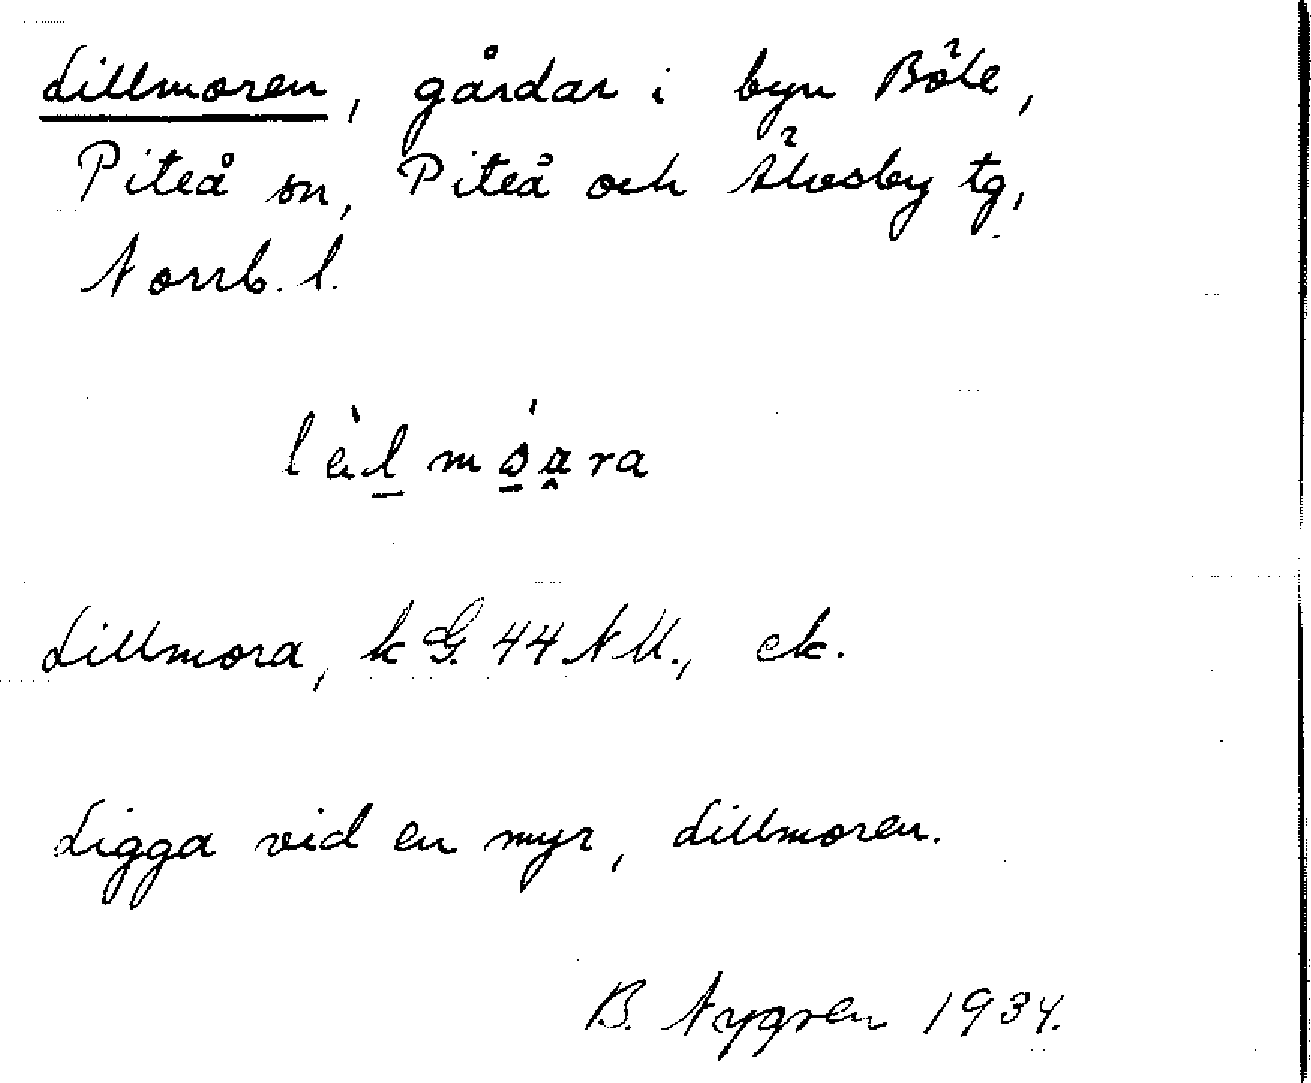 Lillmoren, gårdar i byn Böle,
Piteå sn, Piteå och Älvsby tg,
Norrb. l.
Lillmora, k G. 44 NV., ek.
Ligga vid en myr, Lillmoren.
B. Nygren 1934.